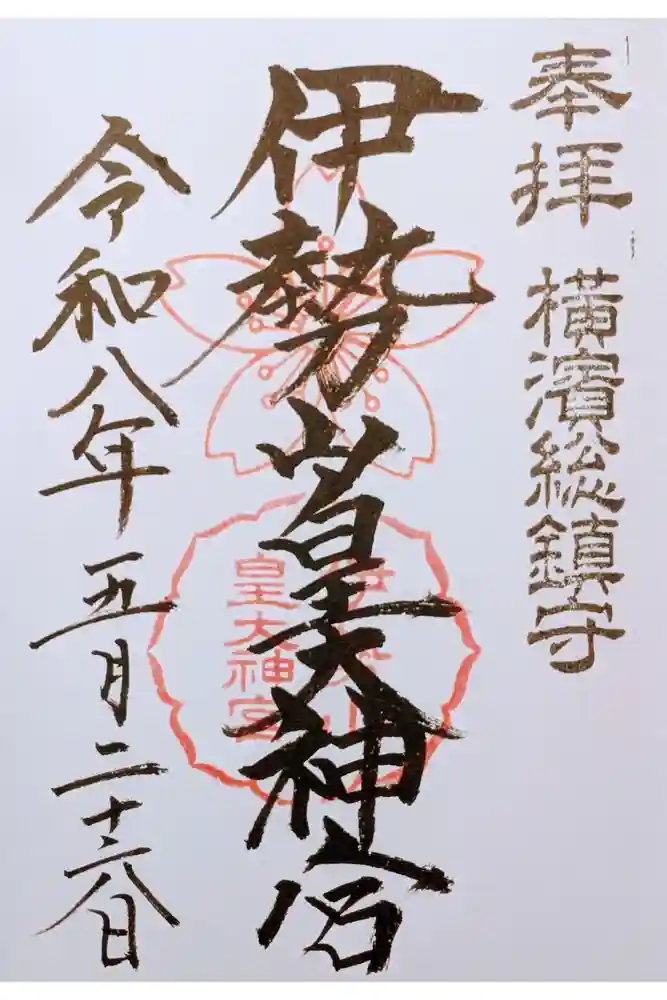 奉拝 横濱総鎮守
伊勢山皇大神宮
伊勢山
皇大神宮
令和八年五月二十六日